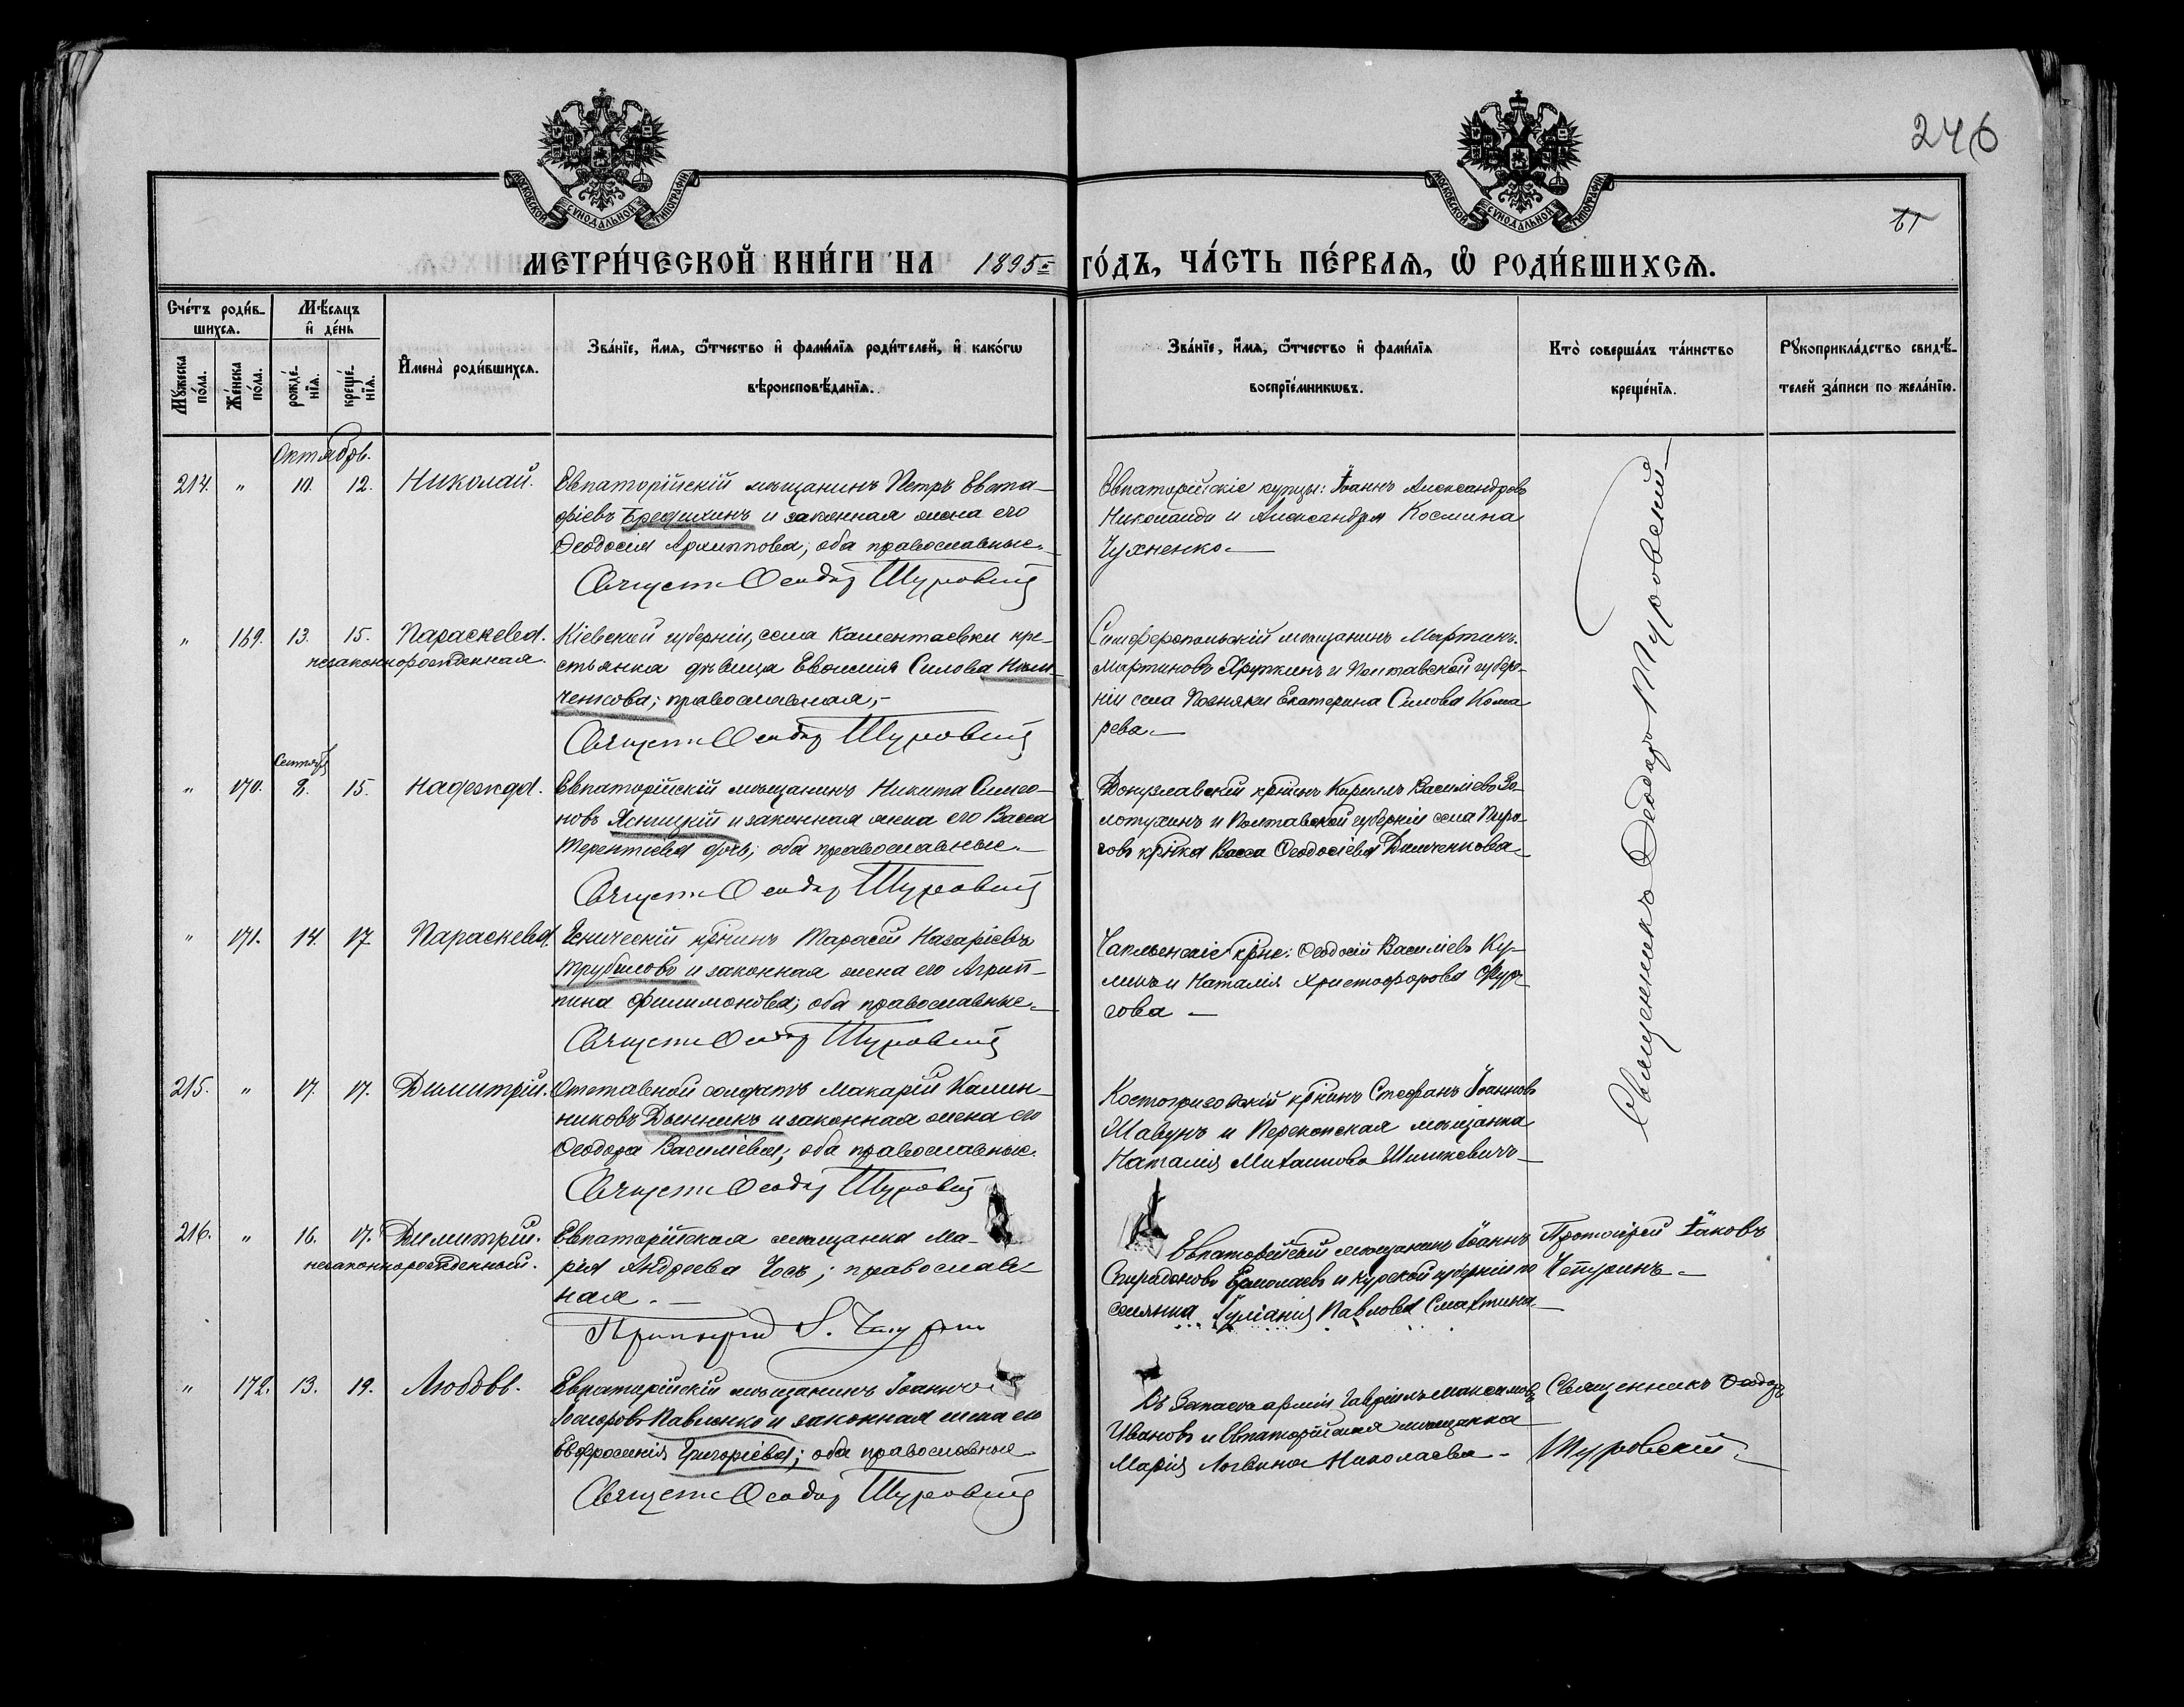 246
61
МОСКОВСКОЙ СѴНОДАЛЬНОЙ ТИПОГРАФІИ
МОСКОВСКОЙ СѴНОДАЛЬНОЙ ТИПОГРАФІИ
МЕТРИ́ЧЕСКОЙ КНИ́ГИ НА 1895й ГО́ДЪ, ЧА́СТЬ ПЕ́РВАѦ, Ѽ РОДИ́ВШИХСѦ.
Сче́тъ роди́в-
шихсѧ.
Мꙋ́жеска по́ла.
Же́нска по́ла.
Мѣ́сѧцъ
и҆ де́нь
рожде́-
нїѧ.
креще́-
нїѧ.
И҆мена̀ роди́вшихсѧ.
Зва́нїе, и҆́мѧ, ѻ҆́тчество и҆ фамѝлїѧ роди́телей, и҆ како́гѡ
вѣроисповѣ́данїѧ.
Зва́нїе, и҆́мѧ, ѻ҆́тчество и҆ фамѝлїѧ
воспрїе́мникѡвъ.
Кто̀ соверша́лъ та́инство
креще́нїѧ.
Рꙋкоприкла́дство свидѣ́-
телей за́писи по жела́нїю.
Октябрь.
214. " 10. 12. Николай.
Евпаторійскій мѣщанинъ Петръ Евста-
фіевъ Брединхинъ и законная жена его
Ѳеодосія Архиппова; оба православные.
Священникъ Ѳеодоръ Туровскій
Евпаторійскіе купцы: Іоаннъ Александровъ
Николаиди и Александра Космина
Чухненко.
Священникъ Ѳеодоръ Туровскій
" 169. 13. 15. Параскева.
незаконнорожденная.
Кіевской губерніи, села Каментаевки кре-
стьянка дѣвица Евѳимія Силова
православная,
Священникъ Ѳеодоръ Туровскій
Симферопольскій мѣщанинъ Мартинъ
Мартиновъ Хруткинъ и Полтавской губер-
ніи села Позняки Екатерина Силова Кома
рева.
Сентябрь
" 170. 8. 15. Надежда.
Евпаторійскій мѣщанинъ Никита Симео-
новъ Яеницкій и законная жена его Васса
Терентіева дочь; оба православные.
Священникъ Ѳеодоръ Туровскій
Донузлавскій кр҃нинъ Кириллъ Василіевъ Зо-
лотухинъ и Полтавской губерніи села Пиро-
говъ кр҃нка Васса Ѳеодосіева Демченкова
" 171. 14. 17. Параскева.
Геническій кр҃нинъ Тарасій Назаріевъ
Трубиловъ и законная жена его Агрип-
пина Филимонова; оба православные.
Священникъ Ѳеодоръ Туровскій
Чаплынскіе кр҃не: Ѳеодосій Василіевъ Ку-
ликъ и Наталія Христофорова Фур-
сова
215. " 17. 17. Димитрій.
Отставной солдатъ Макарій Калин-
никовъ Дынникъ и законная жена его
Ѳеодора Василіева; оба православные.
Священникъ Ѳеодоръ Туровскій
Костогризовскій кр҃нинъ Стефанъ Іоанновъ
Шавунъ и Перекопская мѣщанка
Наталія Михаилова Шишкевичъ
216. " 16. 17. Димитрій.
незаконнорожденный.
Евпаторійская мѣщанка Ма-
рія Андреева Чосъ; православ-
ная.
Протоіерей Я. Чепуринъ
Евпаторійскій мѣщанинъ Іоаннъ
Спиридоновъ Ермолаевъ и Курской губерніи по
селянка Іуліанія Павлова Смахтина
Протоіерей Іаковъ
Чепуринъ.
" 172. 13. 19. Любовь.
Евпаторійскій мѣщанинъ Іоаннъ
Павленко и законная жена его
Евфросинія Григоріева; оба православные
Священникъ Ѳеодоръ Туровскій
Въ Запасѣ арміи Гавріилъ Максимовъ
Ивановъ и Евпаторійская мѣщанка
Марія Логвина Николаева
Священникъ Ѳеодоръ
Туровскій